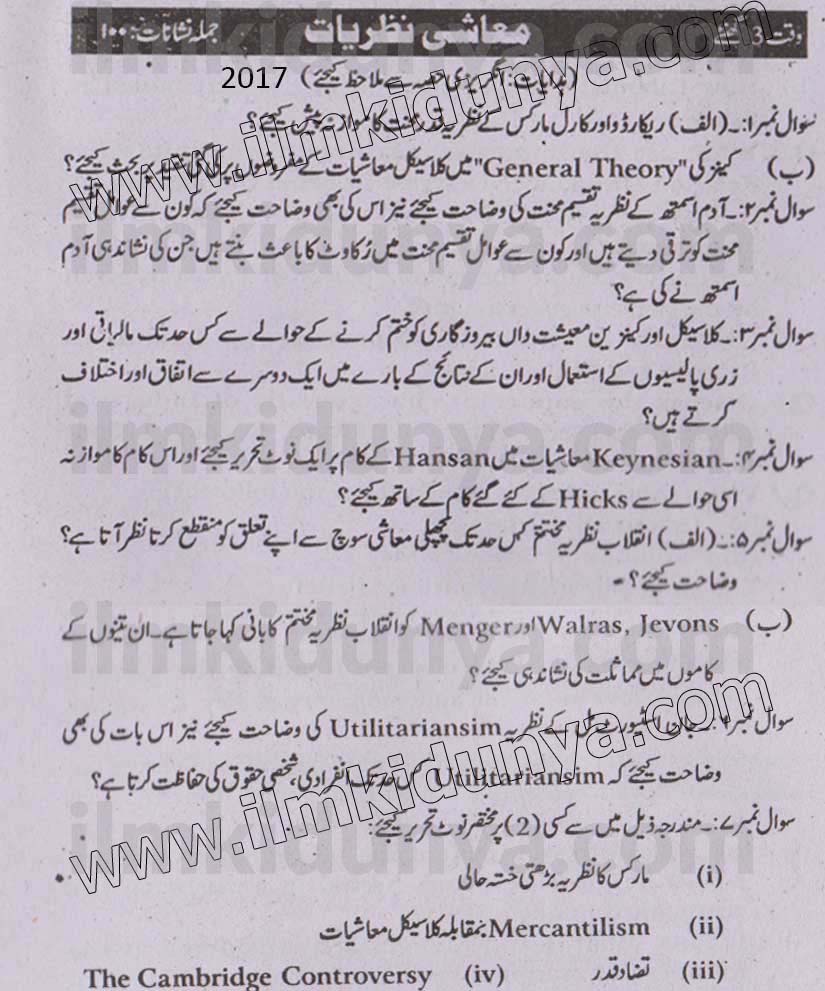 وقت 3 گھنٹے معاشی نظریات جملہ نشانات: ۱۰۰
2017 (ہدایات: انگریزی حصہ سے ملاحظہ کیجئے)
سوال نمبر ۱:۔ (الف) ریکارڈو اور کارل مارکس کے نظریہ قدر محنت کا موازنہ پیش کیجئے؟
(ب) کینز کی "General Theory" میں کلاسیکل معاشیات کے مفروضوں پر کی گئی تنقید پر بحث کیجئے؟
سوال نمبر ۲:۔ آدم اسمتھ کے نظریہ تقسیم محنت کی وضاحت کیجئے نیز اس کی بھی وضاحت کیجئے کہ کون سے عوامل تقسیم
محنت کو ترقی دیتے ہیں اور کون سے عوامل تقسیم محنت میں رکاوٹ کا باعث بنتے ہیں جن کی نشاندہی آدم
اسمتھ نے کی ہے؟
سوال نمبر ۳:۔ کلاسیکل اور کینزین معیشت داں بیروزگاری کو ختم کرنے کے حوالے سے کس حد تک مالیاتی اور
زری پالیسیوں کے استعمال اور ان کے نتائج کے بارے میں ایک دوسرے سے اتفاق اور اختلاف
کرتے ہیں؟
سوال نمبر ۴:۔ Keynesian معاشیات میں Hansan کے کام پر ایک نوٹ تحریر کیجئے اور اس کام کا موازنہ
اسی حوالے سے Hicks کے کئے گئے کام کے ساتھ کیجئے؟
سوال نمبر ۵:۔ (الف) انقلاب نظریہ مختتم کس حد تک پچھلی معاشی سوچ سے اپنے تعلق کو منقطع کرتا نظر آتا ہے؟
وضاحت کیجئے؟
(ب) Walras, Jevons اور Menger کو انقلاب نظریہ مختتم کا بانی کہا جاتا ہے۔ ان تینوں کے
کاموں میں مماثلت کی نشاندہی کیجئے؟
سوال نمبر ۶:۔ جان اسٹیورٹ مل کے نظریہ Utilitariansim کی وضاحت کیجئے نیز اس بات کی بھی
وضاحت کیجئے کہ Utilitariansim کس حد تک انفرادی، شخصی حقوق کی حفاظت کرتا ہے؟
سوال نمبر ۷:۔ مندرجہ ذیل میں سے کسی (2) پر مختصر نوٹ تحریر کیجئے:
(i) مارکس کا نظریہ بڑھتی خستہ حالی
(ii) Mercantilism بمقابلہ کلاسیکل معاشیات
(iii) تضاد قدر (iv) The Cambridge Controversy
www.ilmkidunya.com
www.ilmkidunya.com
ilmkidunya.com
ilmkidunya.com
ilmkidunya.com
ilmkidunya.com
ilmkidunya.com